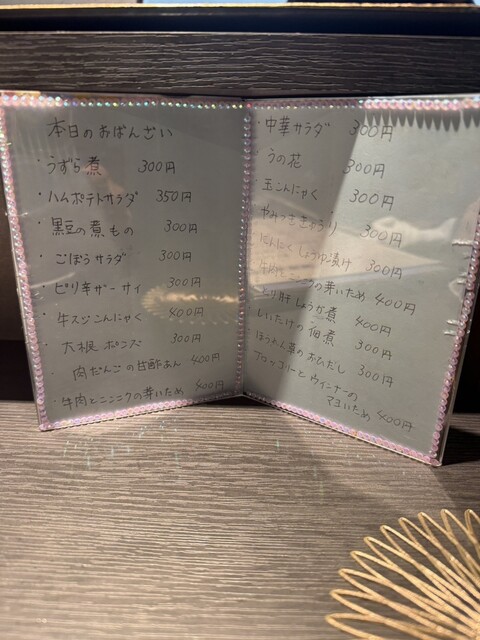 本日のおばんざい
・うずら煮 300円
・ハムポテトサラダ 350円
・黒豆の煮もの 300円
・ごぼうサラダ 300円
・ピリ辛ザーサイ 300円
・牛スジこんにゃく 400円
・大根ポン酢 300円
・肉だんごの甘酢あん 400円
・牛肉とニンニクの芽いため 400円
・中華サラダ 300円
うの花 300円
玉こんにゃく 300円
やみつききゅうり 300円
にんにくしょうゆ漬け 300円
牛肉とニンニクの芽いため 400円
とり肝しょうが煮 400円
しいたけの佃煮 300円
ほうれん草のおひたし 300円
ブロッコリーとウインナーの
マヨいため 400円